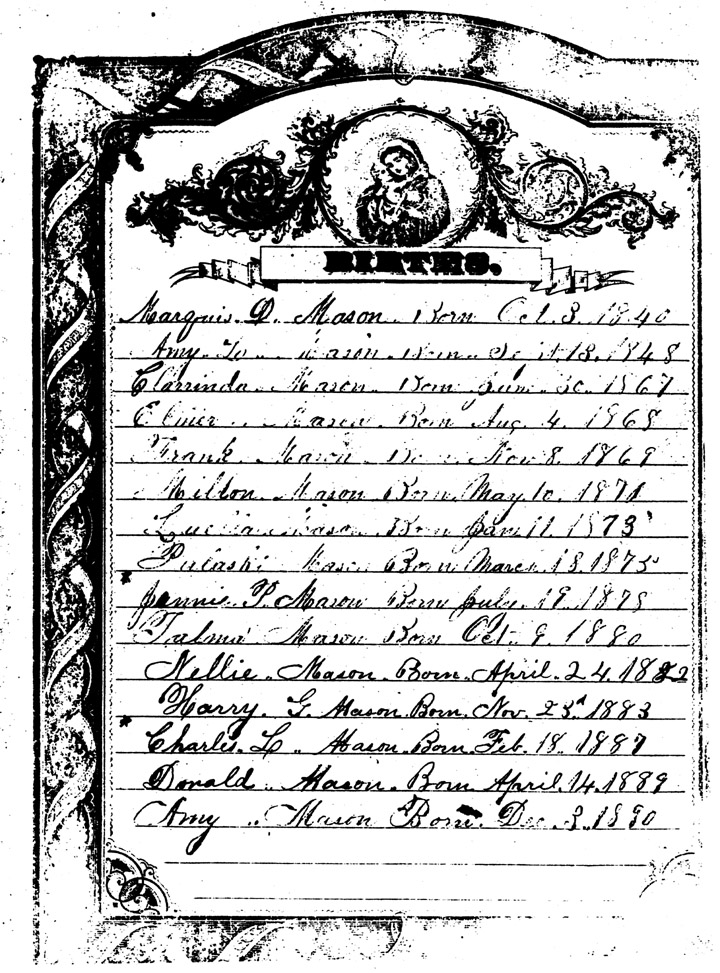 BIRTHS.
Marquis. D. Mason. Born Oct. 3. 1840
Amy. Mason. Born. 13. 1848
Clarrinda. Mason. Born June. 30. 1867
Elmer.. Mason. Born Aug. 4. 1868
Frank. Mason. Born Nov 8. 1869
Milton. Mason Born. May. 10. 1871
Mason. Born Jan. 11. 1873
Pulaski Mason Born March. 18. 1875
* Jennie. P. Mason Born July. 19. 1879
Talma Mason Born Oct. 9. 1880
Nellie.. Mason. Born. April. 24. 1882
Harry. G. Mason Born. Nov. 23d. 1883
* Charles. L.. Mason. Born. Feb. 18. 1887
Donald.. Mason. Born. April. 14. 1889
Amy.. Mason Born. Dec. 3. 1890